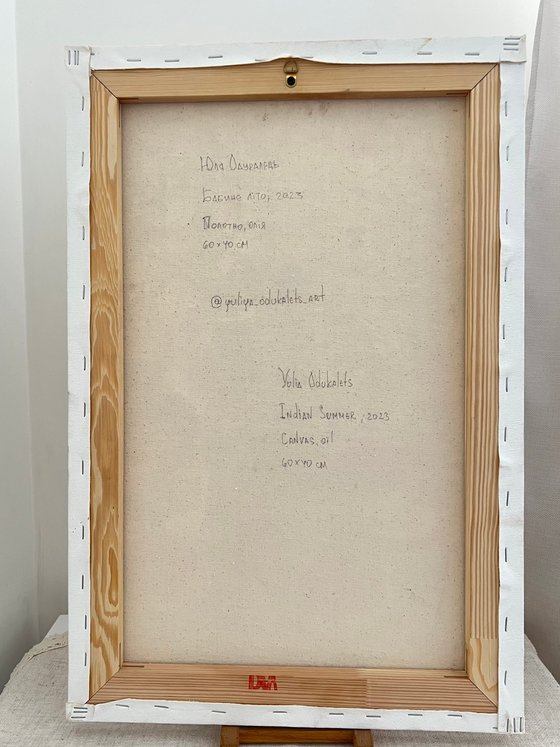 Юлія Одукалець
Бабине літо, 2023
Полотно, олія
60 x 40 см
@yuliya_odukalets_art
Yulia Odukalets
Indian Summer, 2023
Canvas, oil
60 x 40 cm